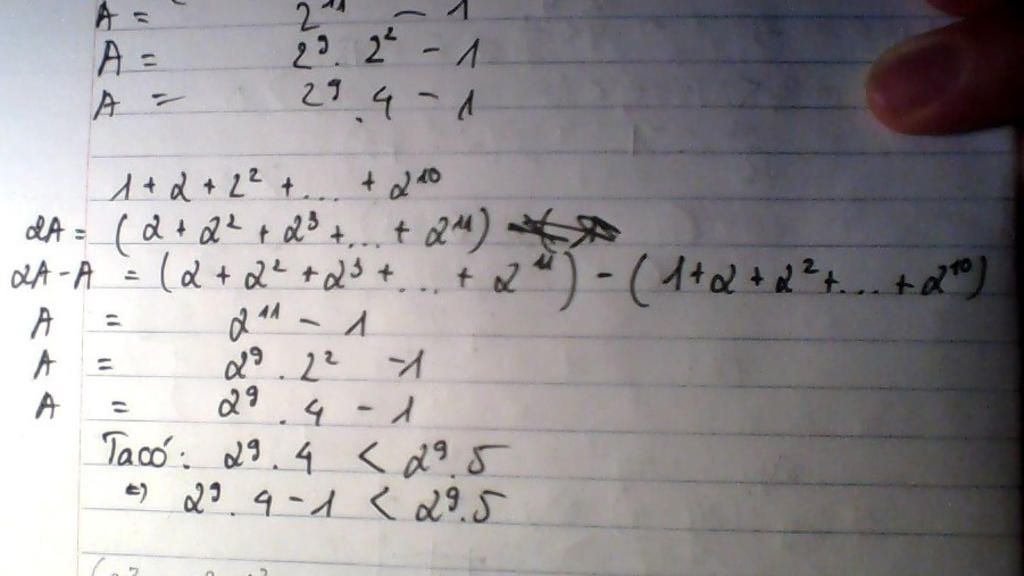 A = 2¹¹ - 1
A = 2⁹ . 2² - 1
A = 2⁹ . 4 - 1
1 + 2 + 2² + ... + 2¹⁰
2A = (2 + 2² + 2³ + ... + 2¹¹)
2A - A = (2 + 2² + 2³ + ... + 2¹¹) - (1 + 2 + 2² + ... + 2¹⁰)
A = 2¹¹ - 1
A = 2⁹ . 2² - 1
A = 2⁹ . 4 - 1
Ta có: 2⁹ . 4 < 2⁹ . 5
⇔ 2⁹ . 4 - 1 < 2⁹ . 5